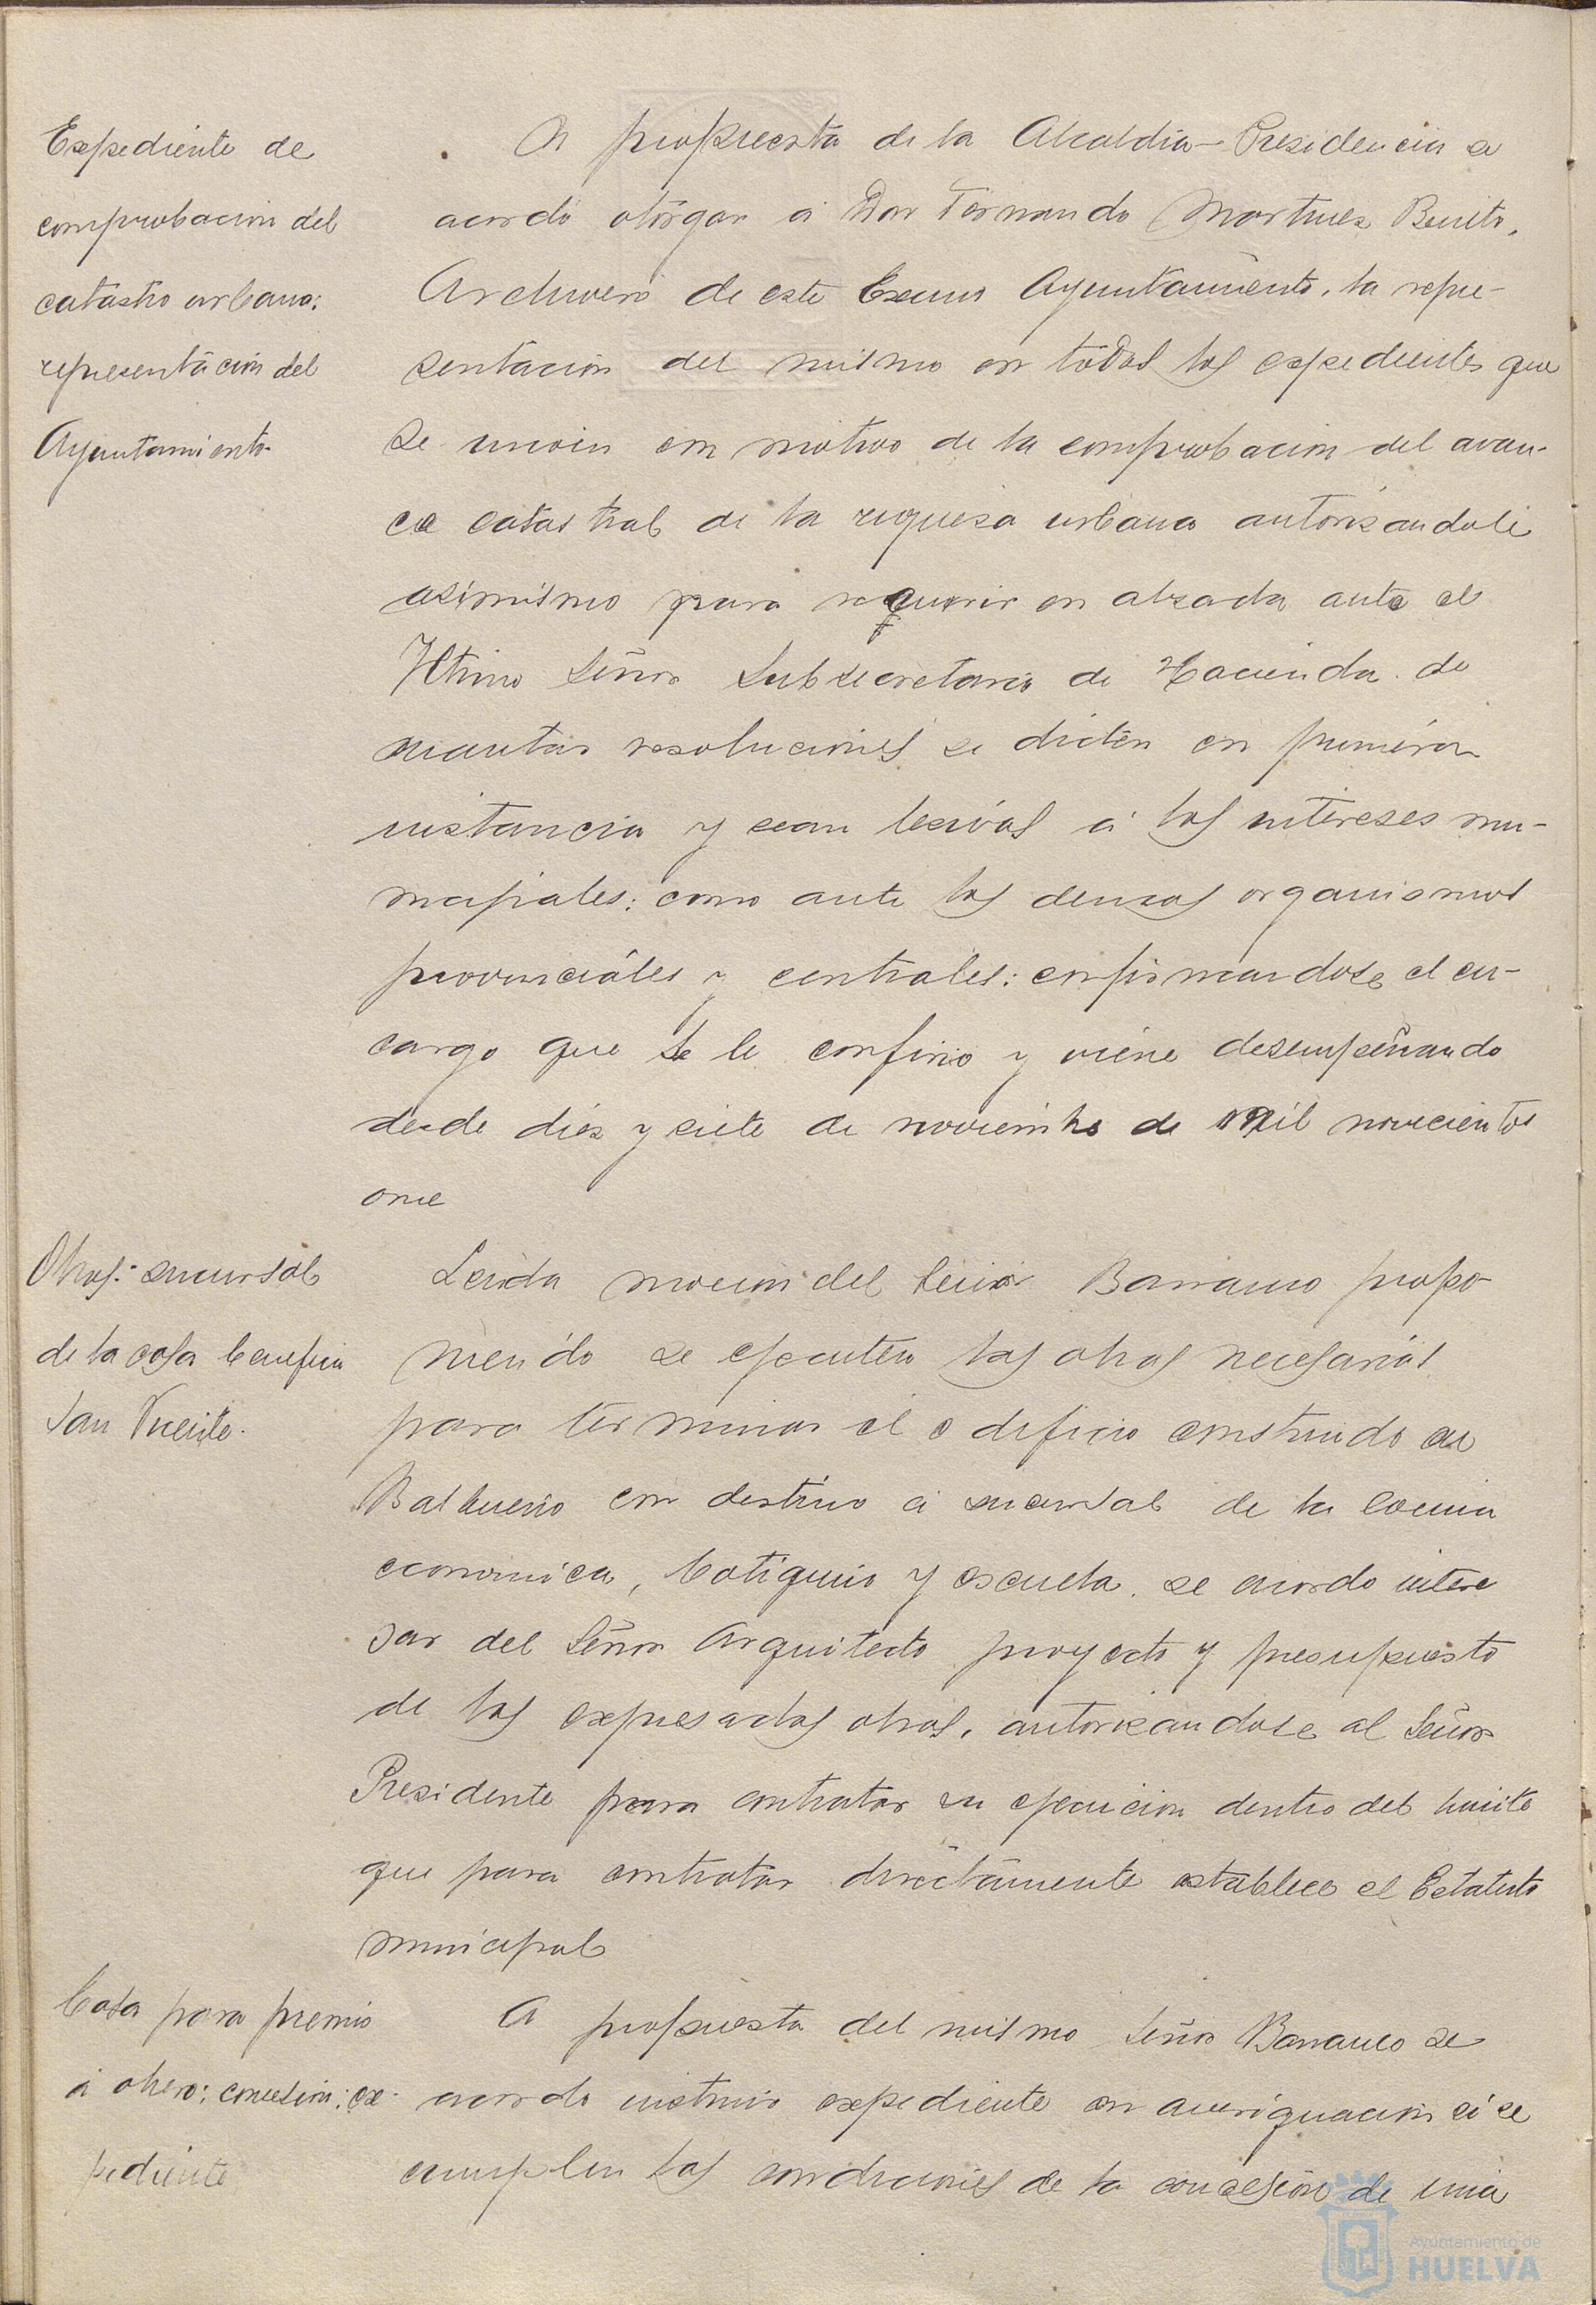 Expediente de
comprobacion del
catastro urbano:
representacion del
Ayuntamiento
A propuesta de la Alcaldia-Presidencia se
acordó otorgar á Don Fernando Martinez Benito,
Archivero de este Excmo Ayuntamiento, la repre-
sentacion del mismo en todos los expedientes que
se incoen con motivo de la comprobacion del avan-
ce catastral de la riqueza urbana autorizandole
asimismo para requerir en alzada ante el
Iltmo Señor Subsecretario de Hacienda de
cuantas resoluciones se dicten en primera
instancia y sean lesivas á los intereses mu-
nicipales: como ante los demas organismos
provinciales y centrales: confirmandose el en-
cargo que se le confirio y viene desempeñando
desde diez y siete de noviembre de mil novecientos
once
Obras: sucursal
de la casa benefica
San Vicente.
Leida mocion del Señor Barranco propo-
niendo se ejecuten las obras necesarias
para terminar el edificio construido en
Balbueno con destino á sucursal de la Cocina
economica, botiquin y escuela. se acordo intere
sar del Señor Arquitecto proyecto y presupuesto
de las expresadas obras, autorizandose al Señor
Presidente para contratar su ejecucion dentro del limite
que para contratar directamente establece el Estatuto
municipal
Casa para premio
á obrero: concesion: ex-
pediente
A propuesta del mismo Señor Barranco se
acordo instruir expediente en averiguacion si se
cumplen las condiciones de la concesión de una
Ayuntamiento de
HUELVA